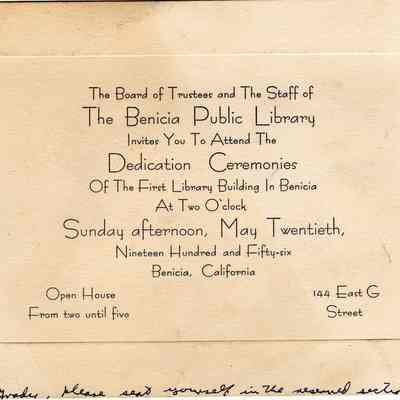 The Board of Trustees and The Staff of
The Benicia Public Library
Invites You To Attend The
Dedication Ceremonies
Of The First Library Building In Benicia
At Two O'clock
Sunday afternoon, May Twentieth,
Nineteen Hundred and Fifty-six
Benicia, California
Open House
From two until five
144 East G
Street
please seat yourself in the reserved